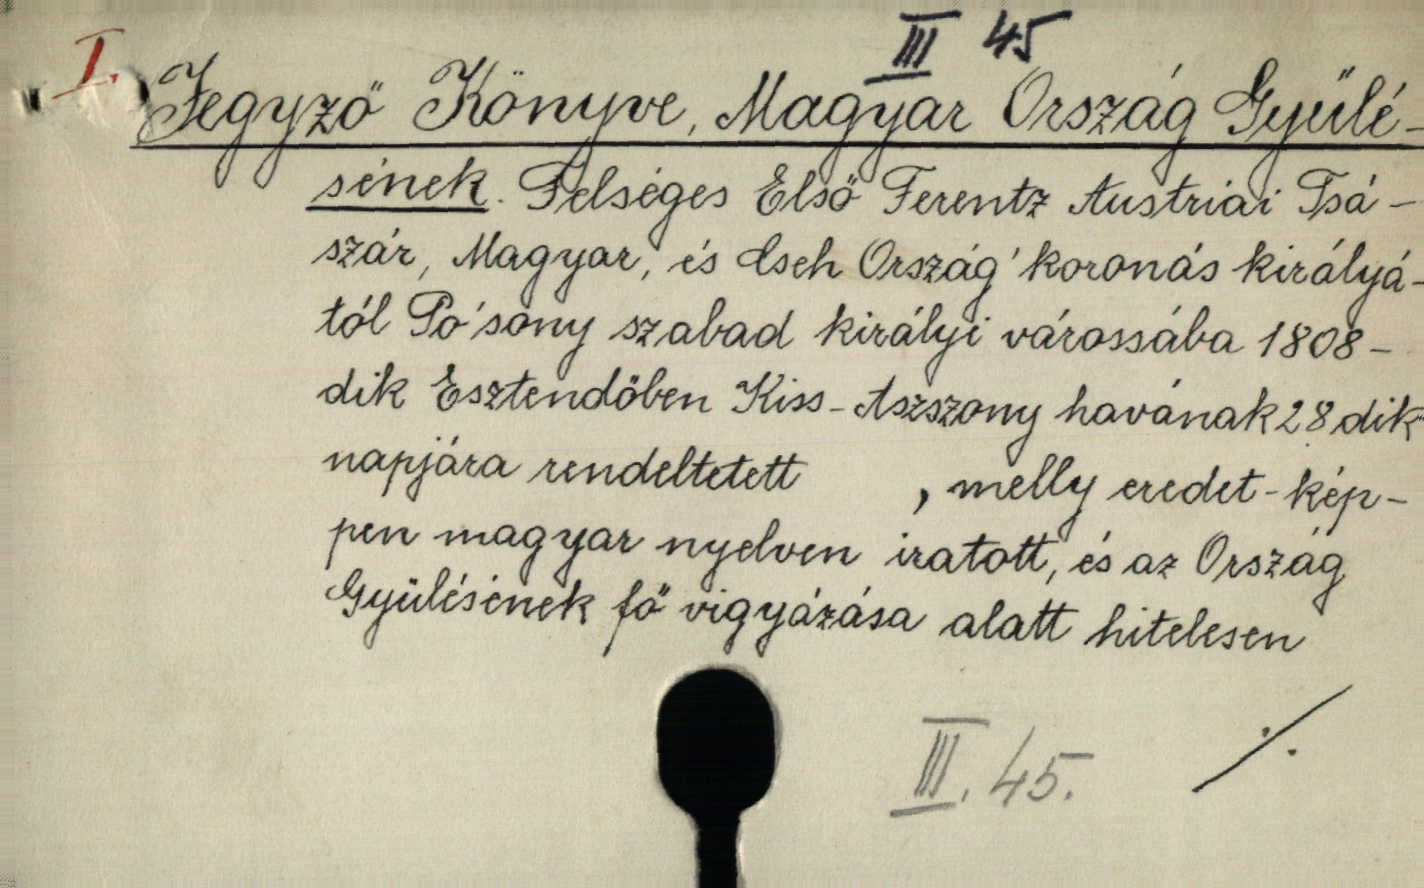 III 45
I.
Jegyző Könyve, Magyar Ország Gyűlé-
sének. Felséges Első Ferentz Austriai Tsá-
szár, Magyar, és Cseh Ország' koronás királyá-
tól Po'sony szabad királyi várossába 1808-
dik Esztendőben Kiss-Aszszony havának 28dik
napjára rendeltetett , melly eredet-kép-
pen magyar nyelven iratott, és az Ország
Gyülésének fő vigyázása alatt hitelesen
III. 45. ./.